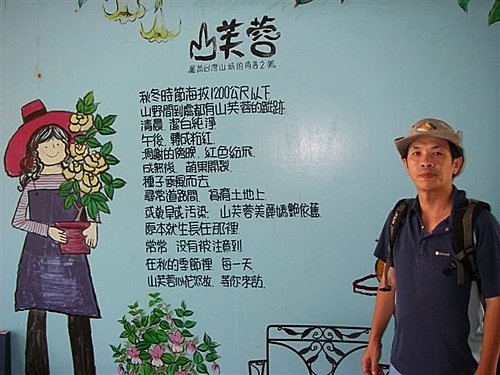 山芙蓉
屬於台灣山城的角落之美
秋冬時節海拔1200公尺以下
山野間到處都有山芙蓉的蹤跡
清晨 潔白純淨
午後 轉成粉紅
凋謝的傍晚 紅色紛飛
成熟後 蒴果開裂
種子乘風而去
尋常道路間 貧瘠土地上
或乾旱或污染 山芙蓉美麗嬌艷依舊
原本就生長在那裡
常常 沒有被注意到
在秋的季節裡 每一天
山芙蓉心花怒放 等你來訪